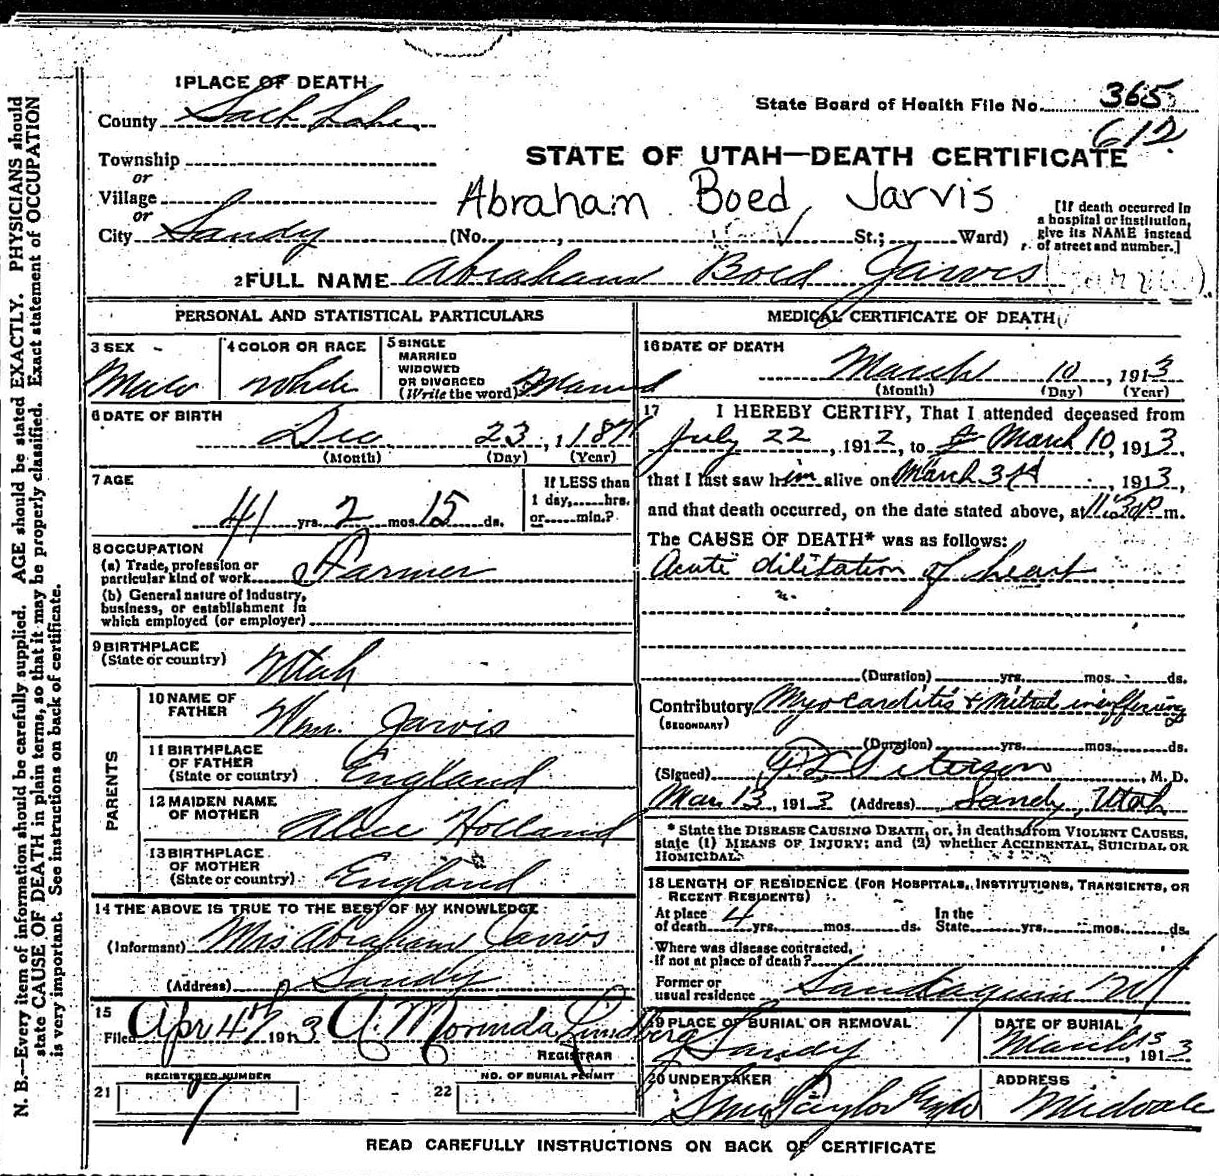 1 PLACE OF DEATH
County Salt Lake
State Board of Health File No. 365
612
Township
or
Village
or
City Sandy (No. , St.; Ward)
STATE OF UTAH—DEATH CERTIFICATE
Abraham Boed Jarvis
[If death occurred in
a hospital or institution,
give its NAME instead
of street and number.]
2 FULL NAME Abraham Boed Jarvis
PERSONAL AND STATISTICAL PARTICULARS
3 SEX
Male
4 COLOR OR RACE
White
5 SINGLE
MARRIED
WIDOWED
OR DIVORCED
(Write the word) Married
6 DATE OF BIRTH
Dec 23, 187
(Month) (Day) (Year)
7 AGE
41 yrs. 2 mos. 15 ds.
If LESS than
1 day, hrs.
or min.?
8 OCCUPATION
(a) Trade, profession or
particular kind of work Farmer
(b) General nature of industry,
business, or establishment in
which employed (or employer)
9 BIRTHPLACE
(State or country) Utah
PARENTS
10 NAME OF
FATHER Wm. Jarvis
11 BIRTHPLACE
OF FATHER
(State or country) England
12 MAIDEN NAME
OF MOTHER Alice Holland
13 BIRTHPLACE
OF MOTHER
(State or country) England
14 THE ABOVE IS TRUE TO THE BEST OF MY KNOWLEDGE
(Informant) Mrs Abraham Jarvis
(Address) Sandy
15
Filed Apr 4th 1913 A. Morinda Lundberg
REGISTRAR
REGISTERED NUMBER
21 7
NO. OF BURIAL PERMIT
22
MEDICAL CERTIFICATE OF DEATH
16 DATE OF DEATH
March 10, 1913
(Month) (Day) (Year)
17 I HEREBY CERTIFY, That I attended deceased from
July 22, 1912, to March 10, 1913,
that I last saw him alive on March 3rd, 1913,
and that death occurred, on the date stated above, at 11:30 P. m.
The CAUSE OF DEATH* was as follows:
Acute dilitation of heart
(Duration) yrs. mos. ds.
Contributory Myocarditis & Mitral insufficiency
(SECONDARY)
(Duration) yrs. mos. ds.
(Signed) Peterson, M. D.
Mar. 13, 1913 (Address) Sandy, Utah
* State the DISEASE CAUSING DEATH, or, in deaths from VIOLENT CAUSES,
state (1) MEANS OF INJURY; and (2) whether ACCIDENTAL, SUICIDAL OR
HOMICIDAL.
18 LENGTH OF RESIDENCE (FOR HOSPITALS, INSTITUTIONS, TRANSIENTS, OR
RECENT RESIDENTS)
At place
of death 4 yrs. mos. ds.
In the
State yrs. mos. ds.
Where was disease contracted,
if not at place of death?
Former or
usual residence Santaquin Ut
19 PLACE OF BURIAL OR REMOVAL
Sandy
DATE OF BURIAL
March 13, 1913
20 UNDERTAKER
ADDRESS
Midvale
READ CAREFULLY INSTRUCTIONS ON BACK OF CERTIFICATE
N. B.—Every item of information should be carefully supplied. AGE should be stated EXACTLY. PHYSICIANS should
state CAUSE OF DEATH in plain terms, so that it may be properly classified. Exact statement of OCCUPATION
is very important. See instructions on back of certificate.